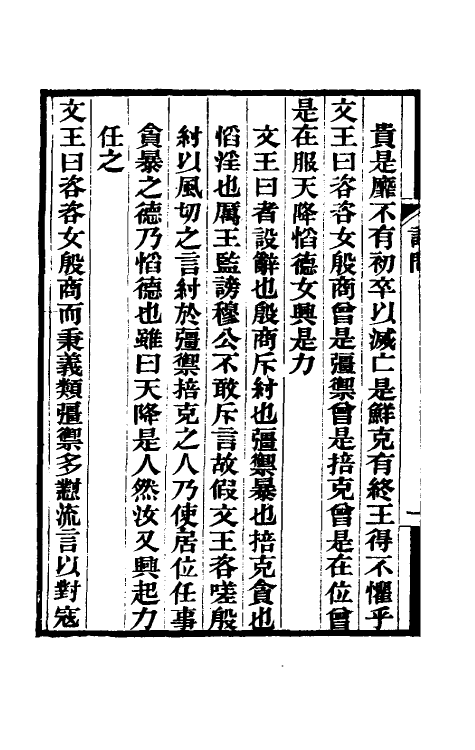 貴是靡不有初卒以滅亡是鮮克有終王得不懼乎
文王曰咨咨女殷商曾是彊禦曾是掊克曾是在位曾
是在服天降慆德女興是力
文王曰者設辭也殷商斥紂也彊禦暴也掊克貪也
慆淫也厲王監謗穆公不敢斥言故假文王咨嗟殷
紂以風切之言紂於彊禦掊克之人乃使居位任事
貪暴之德乃慆德也雖曰天降是人然汝又興起力
任之
文王曰咨咨女殷商而秉義類彊禦多懟流言以對寇